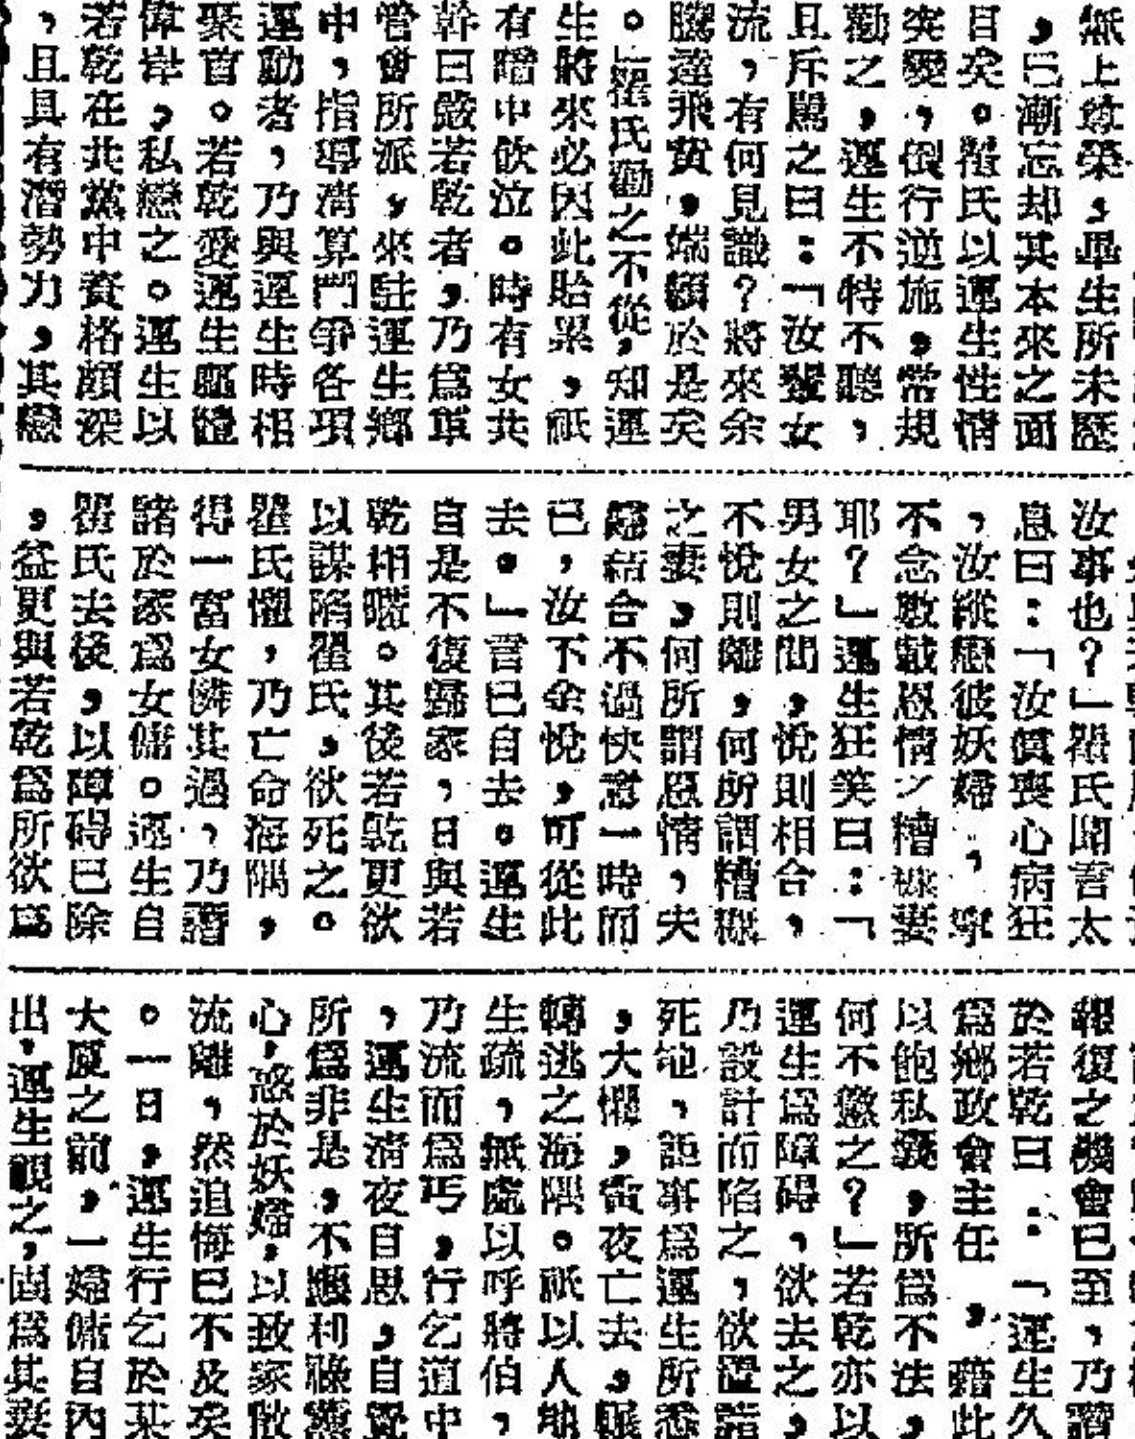 無上尊榮，畢生所未歷
，已漸忘却其本來之面
目矣。翟氏以運生性情
突變，倒行逆施，常規
勸之，運生不特不聽，
且斥罵之曰：「汝輩女
流，有何見識？將來余
騰達飛黃，端賴於是矣
。」翟氏勸之不從，知運
生將來必因此貽累，祇
有暗中飲泣。時有女共
幹曰嚴若乾者，乃爲軍
管會所派，來駐運生鄉
中，指導清算鬥爭各項
運動者，乃與運生時相
聚首。若乾愛運生軀體
偉岸，私戀之。運生以
若乾在共黨中資格頗深
，且具有潛勢力，其戀
汝事也？」翟氏聞言太
息曰：「汝眞喪心病狂
，汝縱戀彼妖婦，寧
不念數載恩情之糟糠妻
耶？」運生狂笑曰：「
男女之間，悅則相合，
不悅則離，何所謂糟糠
之妻，何所謂恩情，夫
婦結合不過快意一時而
已，汝不余悅，可從此
去。」言已自去。運生
自是不復歸家，日與若
乾相暱。其後若乾更欲
以謀陷翟氏，欲死之。
翟氏懼，乃亡命海隅，
得一富女憐其遇，乃薦
諸於家爲女傭。運生自
翟氏去後，以障碍已除
，益更與若乾爲所欲爲
報復之機會已至，乃譖
於若乾曰：「運生久
爲鄉政會主任，藉此
以飽私囊，所爲不法，
何不懲之？」若乾亦以
運生爲障碍，欲去之，
乃設計而陷之，欲置諸
死地，詎事爲運生所悉
，大懼，黃夜亡去，輾
轉逃之海隅。祇以人地
生疏，無處以呼將伯，
乃流而爲丐，行乞道中
，運生清夜自思，自覺
所爲非是，不應利祿薰
心，惑於妖婦，以致家散
流離，然追悔已不及矣
。一日，運生行乞於某
大厦之前，一婦傭自內
出，運生視之，固爲其妻